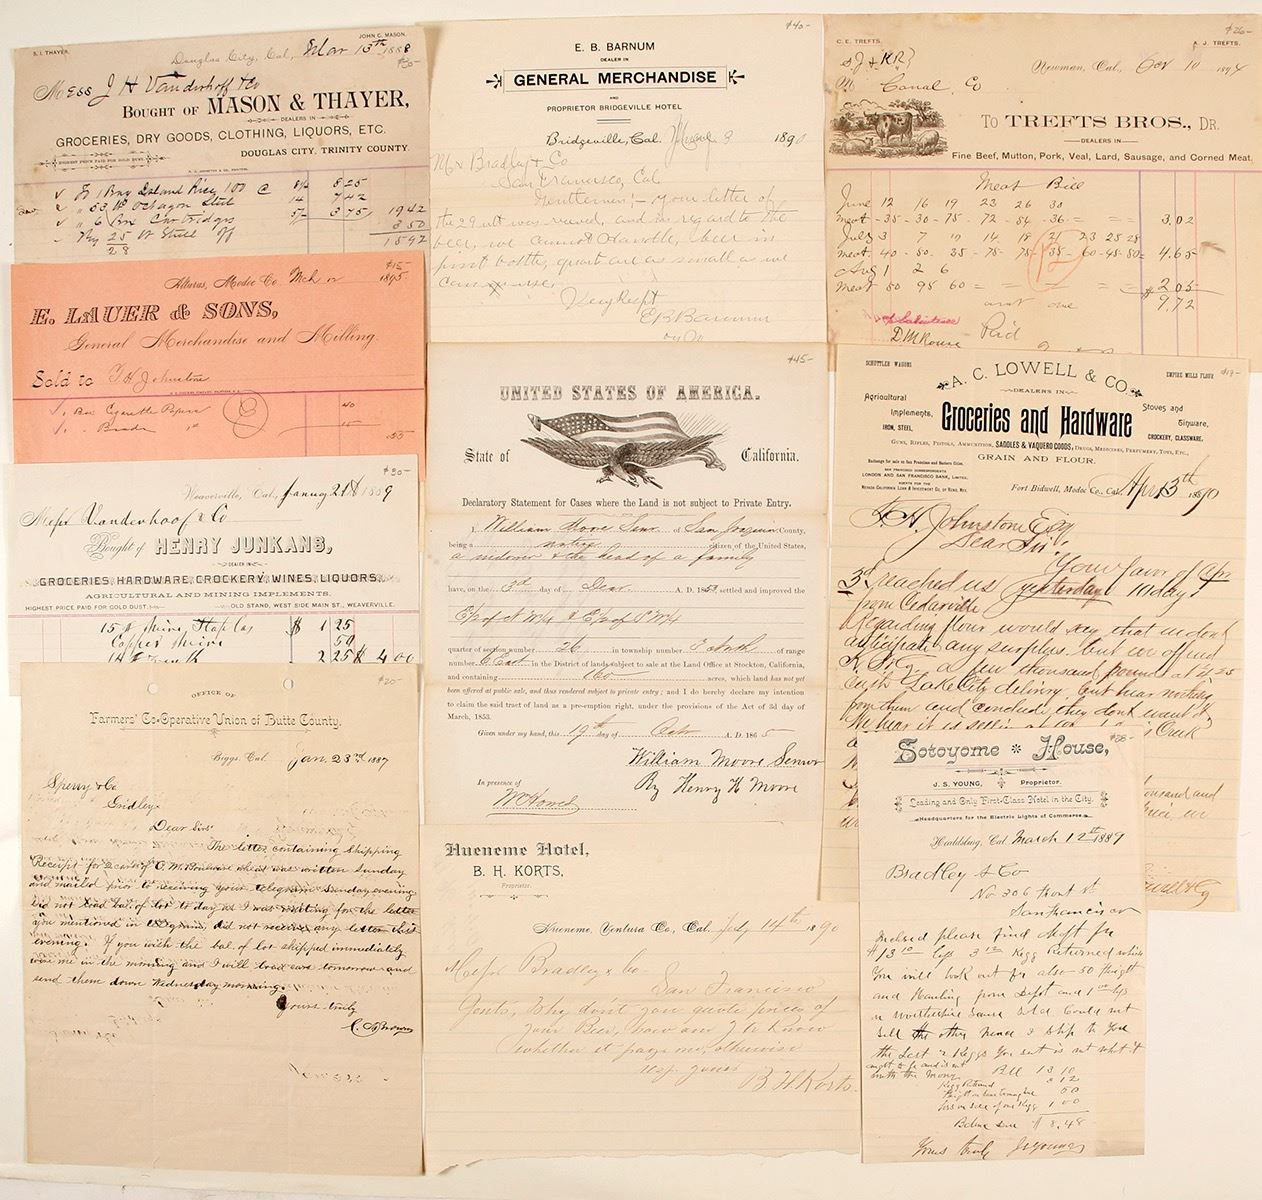 S. I. THAYER.
JOHN C. MASON.
Douglas City, Cal., Mar 13th 1888
$30-
Mess J H Vanderhoff & Co
BOUGHT OF MASON & THAYER,
DEALERS IN
GROCERIES, DRY GOODS, CLOTHING, LIQUORS, ETC.
HIGHEST PRICE PAID FOR GOLD DUST.
DOUGLAS CITY, TRINITY COUNTY.
1 Bag Island Rice 100 8 25
53 lb Octagon Steel 14 7 42
6 Box Cartridges 3 75 19 42
By 25 lb Steel 3 50
28 15 92
$15-
Alturas, Modoc Co. Mch 1895.
E. LAUER & SONS,
General Merchandise and Milling.
Sold to T H Johnstone
1 Box Cigarette Papers 40
.55
$30-
Weaverville, Cal., January 21st 1889
Messrs Vanderhoof & Co
Bought of HENRY JUNKANS,
DEALER IN
GROCERIES, HARDWARE, CROCKERY, WINES, LIQUORS,
AGRICULTURAL AND MINING IMPLEMENTS.
HIGHEST PRICE PAID FOR GOLD DUST.
OLD STAND, WEST SIDE MAIN ST., WEAVERVILLE.
15 # Wire Staples $ 1 25
Copper Wire 50
2 25 $ 4.00
$20-
OFFICE OF
Farmers' Co-Operative Union of Butte County.
Biggs, Cal. Jan. 23rd 1887
Sperry & Co
Gridley
Dear Sirs
The letter containing shipping
Receipt for 2 cars of O. M. wheat was written Sunday
and mailed prior to receiving your telegram Sunday evening
did not load bal. of lot to day as I was waiting for the letter
you mentioned in telegram, did not receive any letter this
evening. If you wish the bal. of lot shipped immediately
wire me in the morning and I will load cars tomorrow and
send them down Wednesday morning.
Yours truly
$40-
E. B. BARNUM
DEALER IN
GENERAL MERCHANDISE
AND
PROPRIETOR BRIDGEVILLE HOTEL
Bridgeville, Cal. 9 1890
Mr Bradley & Co
San Francisco, Cal
Gentlemen:- Your letter of
the 29 ult was received, and in regard to the
beer, we cannot handle, beer in
pint bottles, quart are as small as we
can use.
Very Respt
E B Barnum
$45-
UNITED STATES OF AMERICA.
State of California.
Declaratory Statement for Cases where the Land is not subject to Private Entry.
I, William Moore Senr of San Joaquin County,
being a native citizen of the United States,
a widower & the head of a family
have, on the 3rd day of A. D. 185 settled and improved the
E/2 of N W/4 & E/2 of S W/4
quarter of section number 26 in township number 3 North of range
number 6 East in the District of lands subject to sale at the Land Office at Stockton, California,
and containing 160 acres, which land has not yet
been offered at public sale, and thus rendered subject to private entry; and I do hereby declare my intention
to claim the said tract of land as a pre-emption right, under the provisions of the Act of 3d day of
March, 1853.
Given under my hand, this 19th day of Octr A. D. 1865
William Moore Senior
By Henry H Moore
In presence of
Hueneme Hotel,
B. H. KORTS,
Proprietor.
Hueneme, Ventura Co., Cal. July 14th 1890
Messrs Bradley & Co
San Francisco
Gents, Why don't you quote prices of
your Beer, how am I to know
whether it pays me, otherwise
resp. yours
B. H Korts
$26-
C. E. TREFTS.
A. J. TREFTS.
Newman, Cal., Oct 10 1894
M Canal Co
To TREFTS BROS., DR.
DEALERS IN
Fine Beef, Mutton, Pork, Veal, Lard, Sausage, and Corned Meat.
Meat Bill
June 12 16 19 23 26 30
meat -35-30-75-72-54-36- 3.02
July 3 7 10 14 18 21 23 25 28
meat 40-50-35-75-75-35-60-45-50 4.65
Aug 1 2 6
meat 50 95 60 $ 2.05
9.72
Paid
D M Rouse
SCHUTTLER WAGONS
EMPIRE MILLS FLOUR
$19-
A. C. LOWELL & CO.
DEALERS IN
Agricultural Implements, IRON, STEEL,
Groceries and Hardware
Stoves and Tinware, CROCKERY, GLASSWARE.
GUNS, RIFLES, PISTOLS, AMMUNITION, SADDLES & VAQUERO GOODS, DRUGS, MEDICINES, PERFUMERY, TOYS, ETC.,
GRAIN AND FLOUR.
Exchange for sale on San Francisco and Eastern Cities.
SAN FRANCISCO CORRESPONDENTS
LONDON AND SAN FRANCISCO BANK, LIMITED.
AGENTS FOR THE
NEVADA-CALIFORNIA LOAN & INVESTMENT CO. OF RENO, NEV.
Fort Bidwell, Modoc Co., Cal. Apr 13th 1890
T. H. Johnstone Esq
Dear Sir:
Your favor of Apr
3rd reached us yesterday 10 days
from Cedarville
Regarding flour would say that we don't
anticipate any surplus, but we offered
a few thousand pounds at 2.25
cash Lake City delivery, but hear nothing
from them and conclude they don't want it.
We hear it is selling
thousand and
$28-
Sotoyome House,
J. S. YOUNG, Proprietor.
Leading and Only First-Class Hotel in the City.
Headquarters for the Electric Lights of Commerce.
Healdsburg, Cal March 12th 1889
Bradley & Co
No. 306 Front St
San Francisco
Inclosed please find
Kegg Returned which
You will look out for also 50 freight
and Hauling from Depot and 1.00 loss
Could not
sell the other hence I ship to you
the Last 2 Keggs You sent is not what it
ought to be and is not
worth the money
Bill 13 10
Kegg Returned 3 12
50
loss on sale of one Kegg 1 00
Balance due $ 8.48
Yours truly J S Young